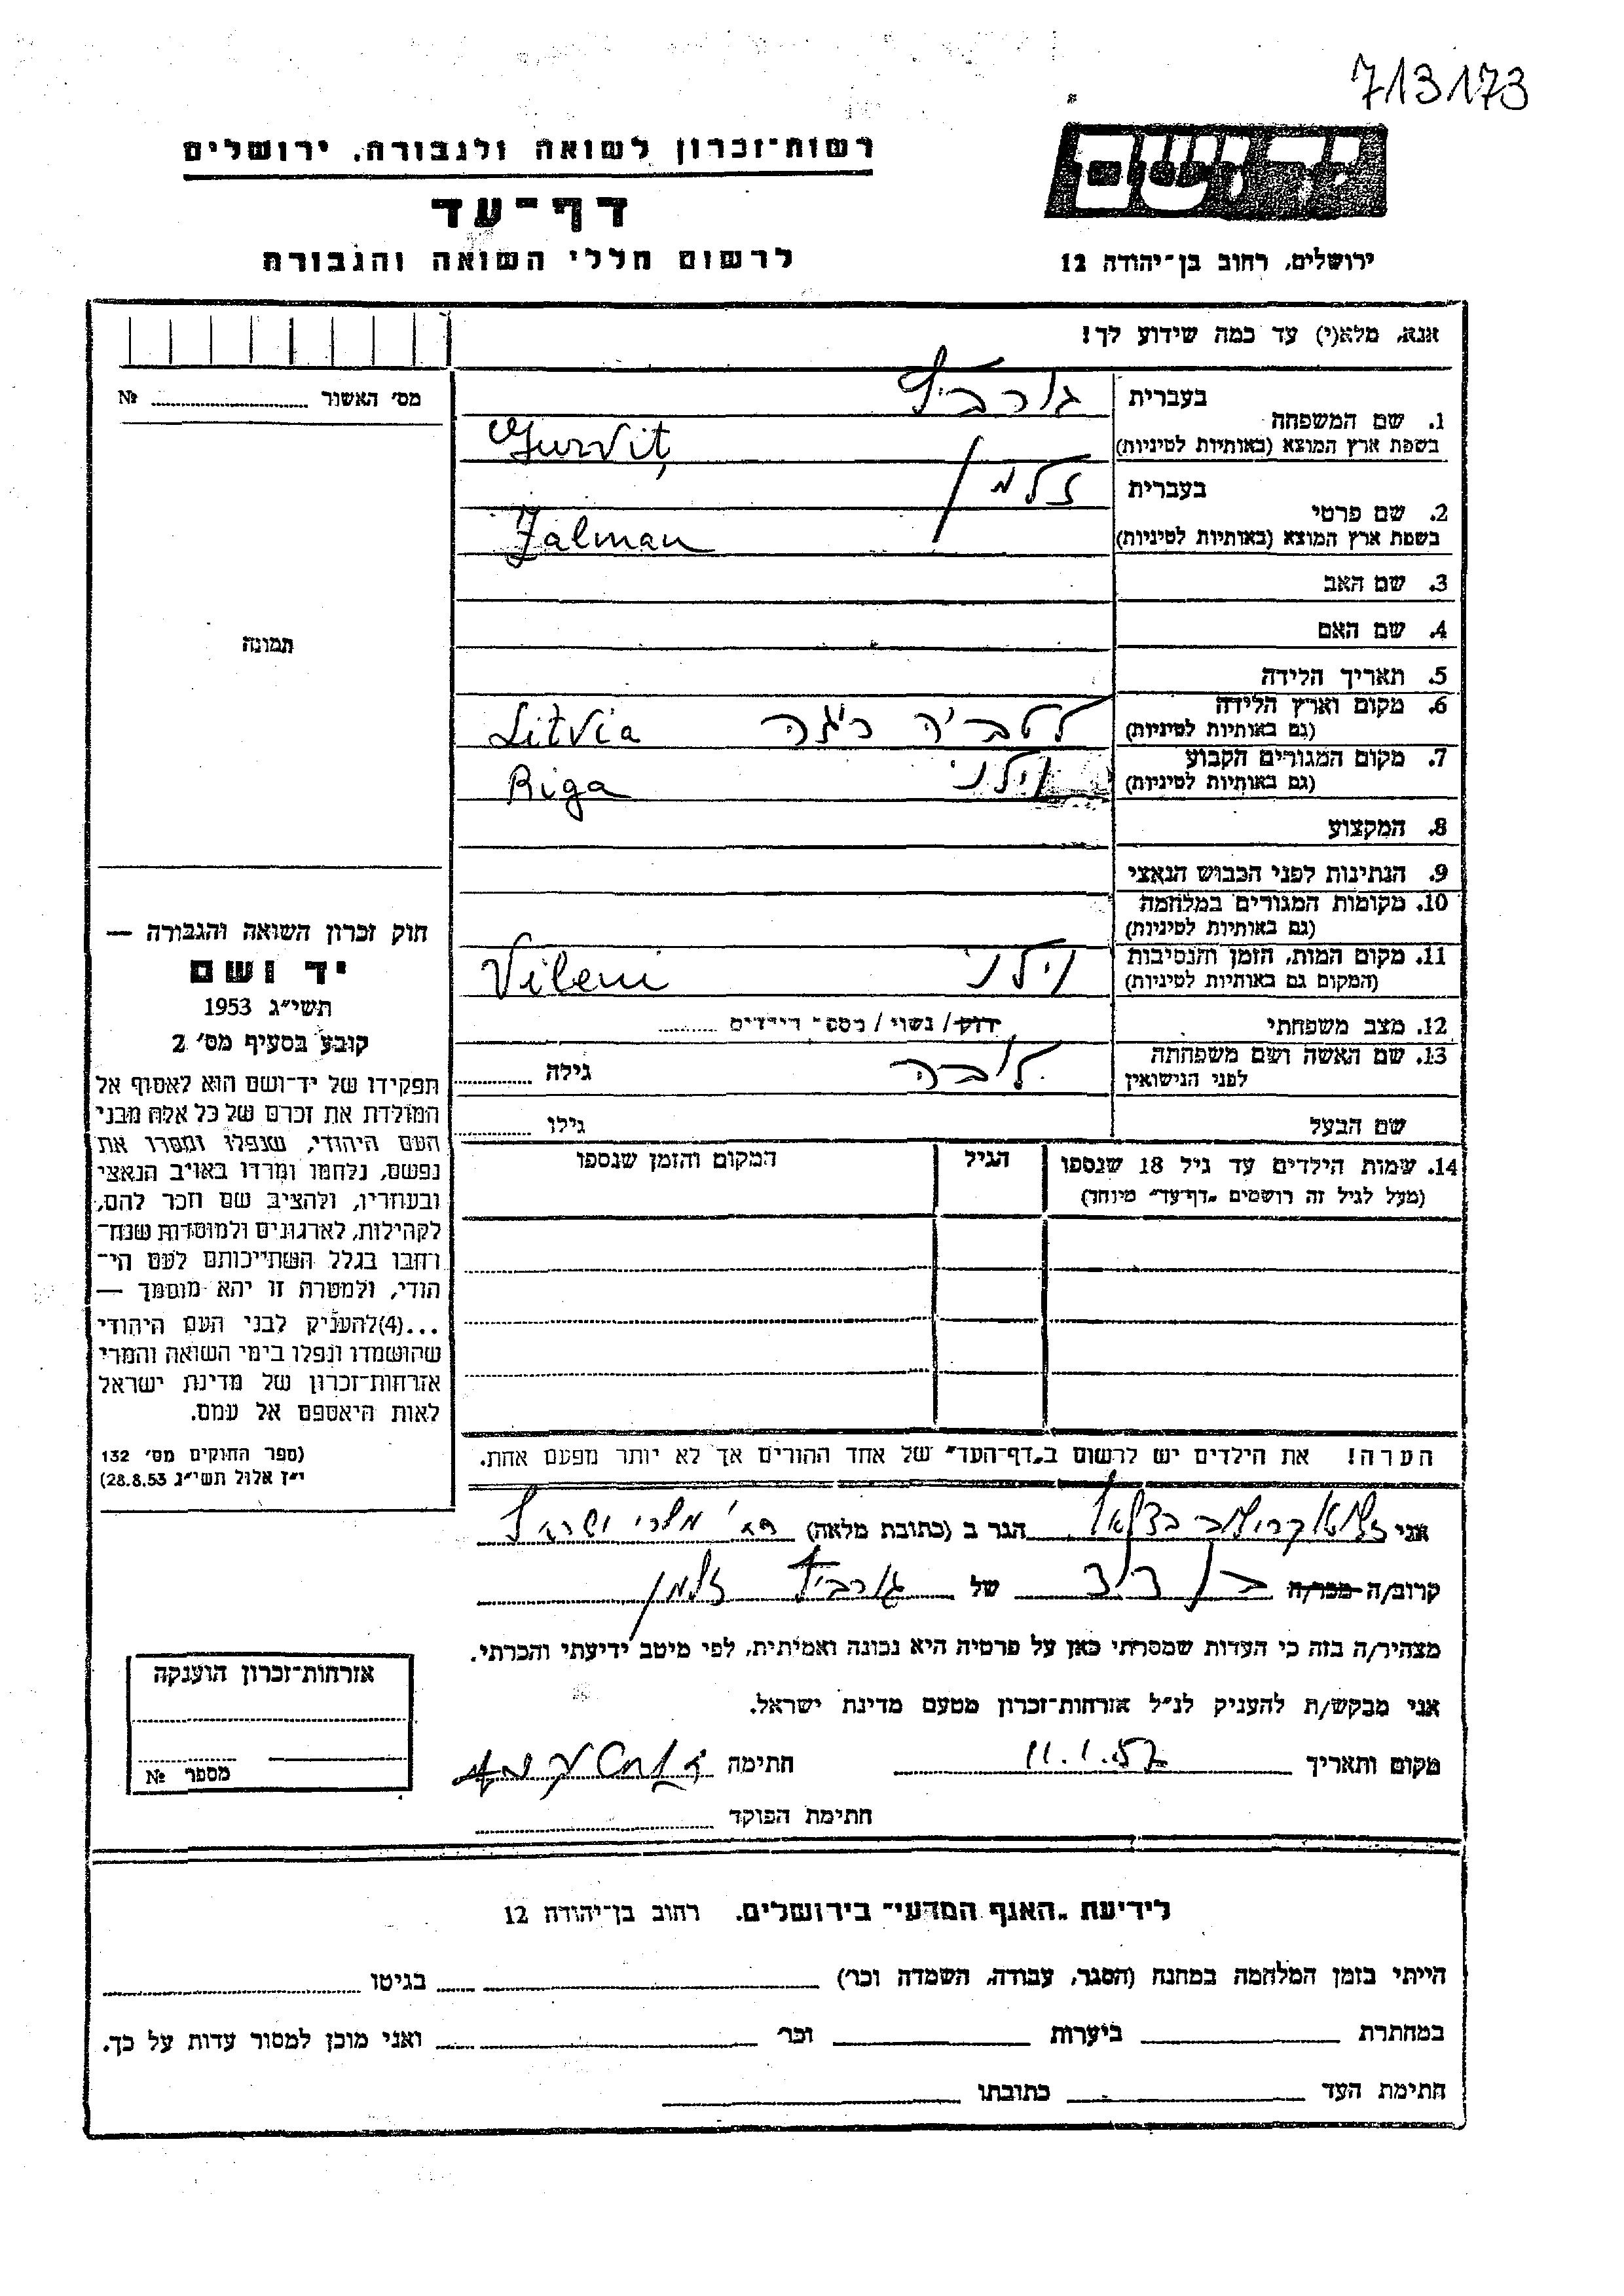 713173
יד ושם
רשות־זכרון לשואה ולגבורה, ירושלים
דף־עד
לרשום חללי השואה והגבורה
ירושלים, רחוב בן־יהודה 12
אנא, מלא(י) עד כמה שידוע לך!
מס' האשור № 
1. שם המשפחה
בעברית גורביץ
בשפת ארץ המוצא (באותיות לטיניות) Gurviț
2. שם פרטי
בעברית זלמן
בשפת ארץ המוצא (באותיות לטיניות) Zalman
3. שם האב
4. שם האם
תמונה
5. תאריך הלידה
6. מקום וארץ הלידה
(גם באותיות לטיניות) לטביה ריגה Litvia
7. מקום המגורים הקבוע
(גם באותיות לטיניות) וילני Riga
8. המקצוע
9. הנתינות לפני הכבוש הנאצי
10. מקומות המגורים במלחמה
(גם באותיות לטיניות)
11. מקום המות, הזמן והנסיבות
(המקום גם באותיות לטיניות) וילני Vileni
12. מצב משפחתי רווק/ נשוי/ מספר הילדים
13. שם האשה ושם משפחתה
לפני הנישואין לובה גילה
שם הבעל גילו
14. שמות הילדים עד גיל 18 שנספו הגיל המקום והזמן שנספו
(מעל לגיל זה רושמים „דף־עד" מיוחד)
הערה! את הילדים יש לרשום ב„דף־העד" של אחד ההורים אך לא יותר מפעם אחת.
חוק זכרון השואה והגבורה —
יד ושם
תשי״ג 1953
קובע בסעיף מס' 2
תפקידו של יד־ושם הוא לאסוף אל
המולדת את זכרם של כל אלה מבני
העם היהודי, שנפלו ומסרו את
נפשם, נלחמו ומרדו באויב הנאצי
ובעוזריו, ולהציב שם וזכר להם,
לקהילות, לארגונים ולמוסדות שנח־
רחבו בגלל השתייכותם לעם הי־
הודי, ולמטרה זו יהא מוסמך —
...(4)להעניק לבני העם היהודי
שהושמדו ונפלו בימי השואה והמרי
אזרחות־זכרון של מדינת ישראל
לאות היאספם אל עמם.
(ספר החוקים מס' 132
י״ז אלול תשי״ג 28.8.53)
אני הגר ב (כתובת מלאה)
קרוב/ה מכר/ה בן דוד של גורביץ זלמן
מצהיר/ה בזה כי העדות שמסרתי כאן על פרטיה היא נכונה ואמיתית, לפי מיטב ידיעתי והכרתי.
אני מבקש/ת להעניק לנ״ל אזרחות־זכרון מטעם מדינת ישראל.
מקום ותאריך 11.1.57 חתימה
חתימת הפוקד
אזרחות־זכרון הוענקה
מספר №
לידיעת „האגף המדעי" בירושלים. רחוב בן־יהודה 12
הייתי בזמן המלחמה במחנה (הסגר, עבודה, השמדה וכר') בגיטו
במחתרת ביערות וכר' ואני מוכן למסור עדות על כך.
חתימת העד כתובתו